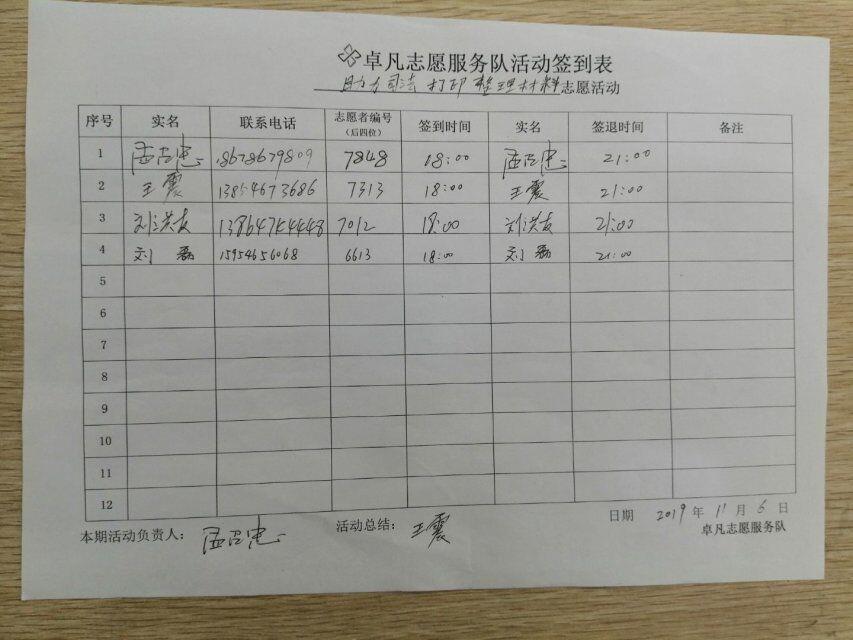 卓凡志愿服务队活动签到表
助力司法打印整理材料志愿活动
序号 实名 联系电话 志愿者编号（后四位） 签到时间 实名 签退时间 备注
1 孟召忠 18678679809 7848 18:00 孟召忠 21:00
2 王震 13854673686 7313 18:00 王震 21:00
3 刘洪友 7012 18:00 刘洪友 21:00
4 刘磊 15954656068 6613 18:00 刘磊 21:00
5
6
7
8
9
10
11
12
本期活动负责人： 孟召忠 活动总结： 王震 日期 2019年11月6日
卓凡志愿服务队